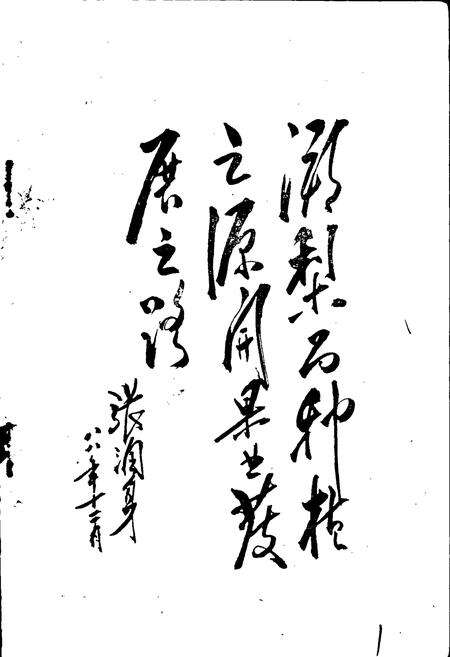 溯梨品种植
之源开果业发
展之路
张润身
八八年十二月